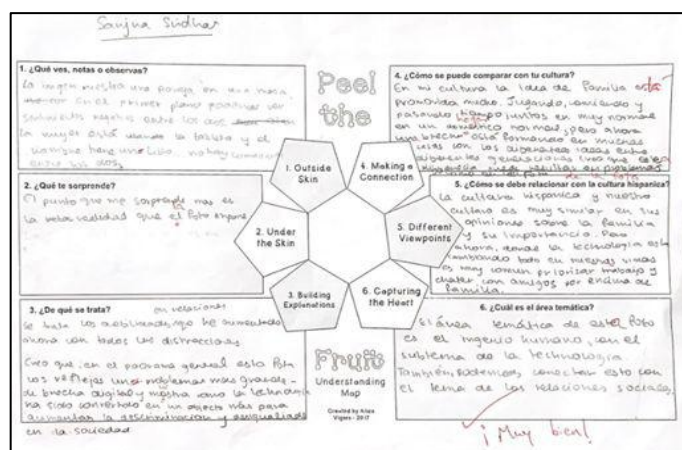 Sanjna Sridhar
1. ¿Qué ves, notas o observas?
La imagen muestra una pareja en una mesa,
en el primer plano podemos ver
entre los dos
La mujer está usando la tableta y el
hombre tiene una
entre los dos.
2. ¿Qué te sorprende?
El punto que me sorprende mas es
la realidad que el foto expone
3. ¿De qué se trata?
en relaciones
se trata los que ha aumentado
ahora con todos las distracciones
Creo que, en el general esta foto
los reflejas una problema mas grande -
de brecha digital y mostra como la technologia
ha sido convertido en un objecto más para
aumentar la discriminación y
en la sociedad
Peel
the
1. Outside
Skin
6. Making a
Connection
2. Under
the Skin
5. Different
Viewpoints
3. Building
Explanations
6. Capturing
the Heart
Fruit
Understanding
Map
Created by Alice
Vigors - 2017
4. ¿Cómo se puede comparar con tu cultura?
En mi cultura la idea de familia está
promovida mucho. Jugando, comiendo y
pasando tiempo juntos es muy normal
en un normal, pero ahora
una brecha está formando en muchas
con los diferentes ideas entre
diferentes generaciones creo que este
en problemas
de la foto
5. ¿Cómo se debe relacionar con la cultura hispanica?
La cultura hispanica y nuestra
cultura es muy similar en sus
opiniones sobre la familia
y su importancia. Pero
ahora, donde la technologia esta
cambiando todo en nuestras vidas
es muy comun priorizar trabajo y
chatear con amigos por encima de
familia.
6. ¿Cuál es el área temática?
El área temática de esta foto
es el ingenio humano, con el
subtema de la technologia.
También podemos, conectar esto con
el tema de las relaciones sociales.
¡Muy bien!